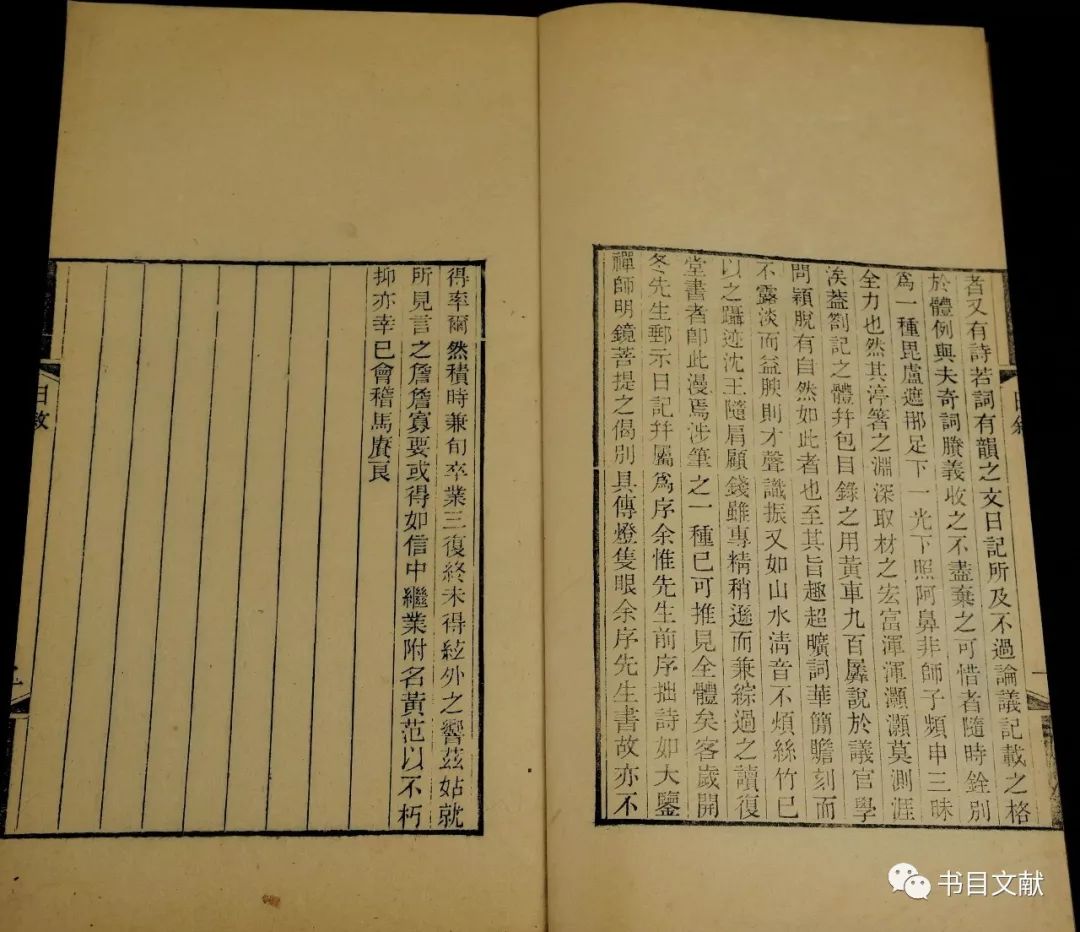 者又有詩若詞有韻之文日記所及不過論議記載之格
於體例與夫奇詞賸義收之不盡棄之可惜者隨時銓別
爲一種毘盧遮那足下一光下照阿鼻非師子頻申三昧
全力也然其渟箬之淵深取材之宏富渾渾灝灝莫測涯
涘蓋劄記之體幷包目錄之用黃車九百羼說於議官學
問穎脫有自然如此者也至其旨趣超曠詞華簡贍刻而
不露淡而益腴則才聲識振又如山水淸音不煩絲竹已
以之躡迹沈王隨肩顧錢雖專精稍遜而兼綜過之讀復
堂書者卽此漫焉涉筆之一種已可推見全體矣客歲開
冬先生郵示日記幷屬爲序余惟先生前序拙詩如大鑒
禪師明鏡菩提之偈別具傳燈隻眼余序先生書故亦不
得率爾然積時兼旬卒業三復終未得絃外之響茲姑就
所見言之詹詹寡要或得如信中繼業附名黃范以不朽
抑亦幸已會稽馬賡良
日敘
二
书目文献